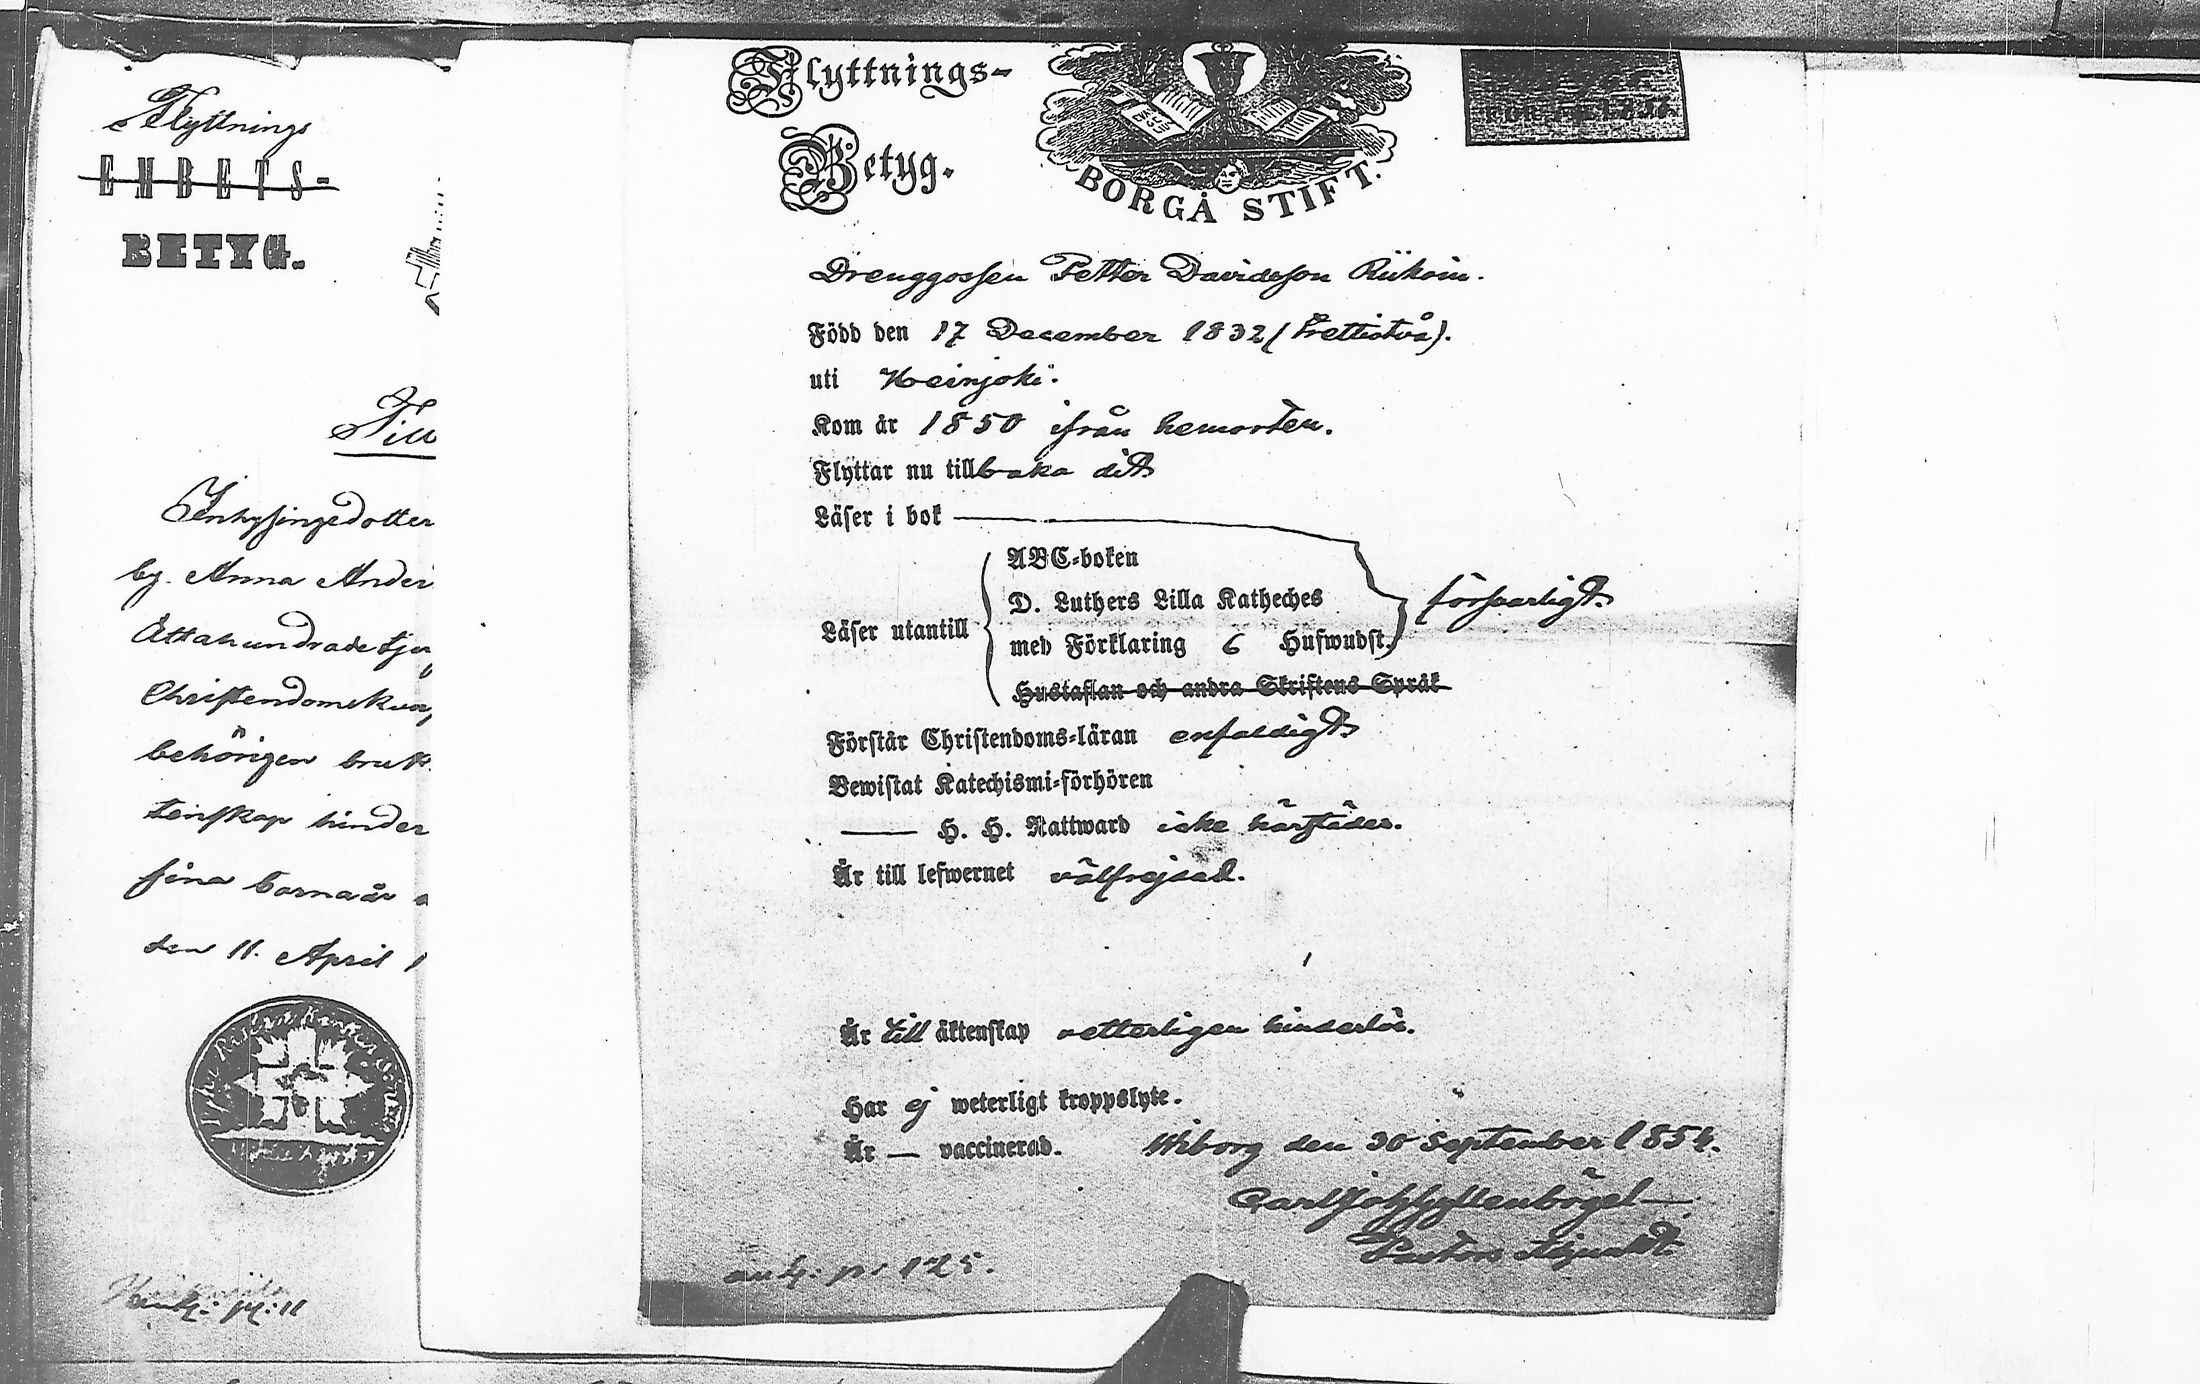 Flyttnings
EMBETS-
BETYG.
Till
Inhysingedotter
by. Anna Ander
Ättahundrade tju
Christendomskun
behörigen bruk
tenskap hinder
sina barnaår
den 11. April 1
Flyttnings-
Betyg.
EVAN
GELI
BORGÅ STIFT.
Drenggossen Petter Davidsson Riikoin.
Född den 17 December 1832 (Trettiotvå).
uti Heinjoki.
Kom år 1850 ifrån hemorten.
Flyttar nu tillbaka dit
Läser i bok
ABC-boken
D. Luthers Lilla Katheches
Läser utantill
med Förklaring 6 Hufwudst.
försvarligt.
Hustaflan och andra Skriftens Språk
Förstår Christendoms-läran enfaldigt
Bewistat Katechismi-förhören
— H. H. Nattward icke härstädes.
Är till lefwernet välfrejdad.
Är till äktenskap vetterligen hinderlös.
Har ej weterligt kroppslyte.
Är — vaccinerad.
Wiborg den 30 September 1854.
Carl Joh Gyllenbögel
Pastors Adjunkt.
ank: p. 125.